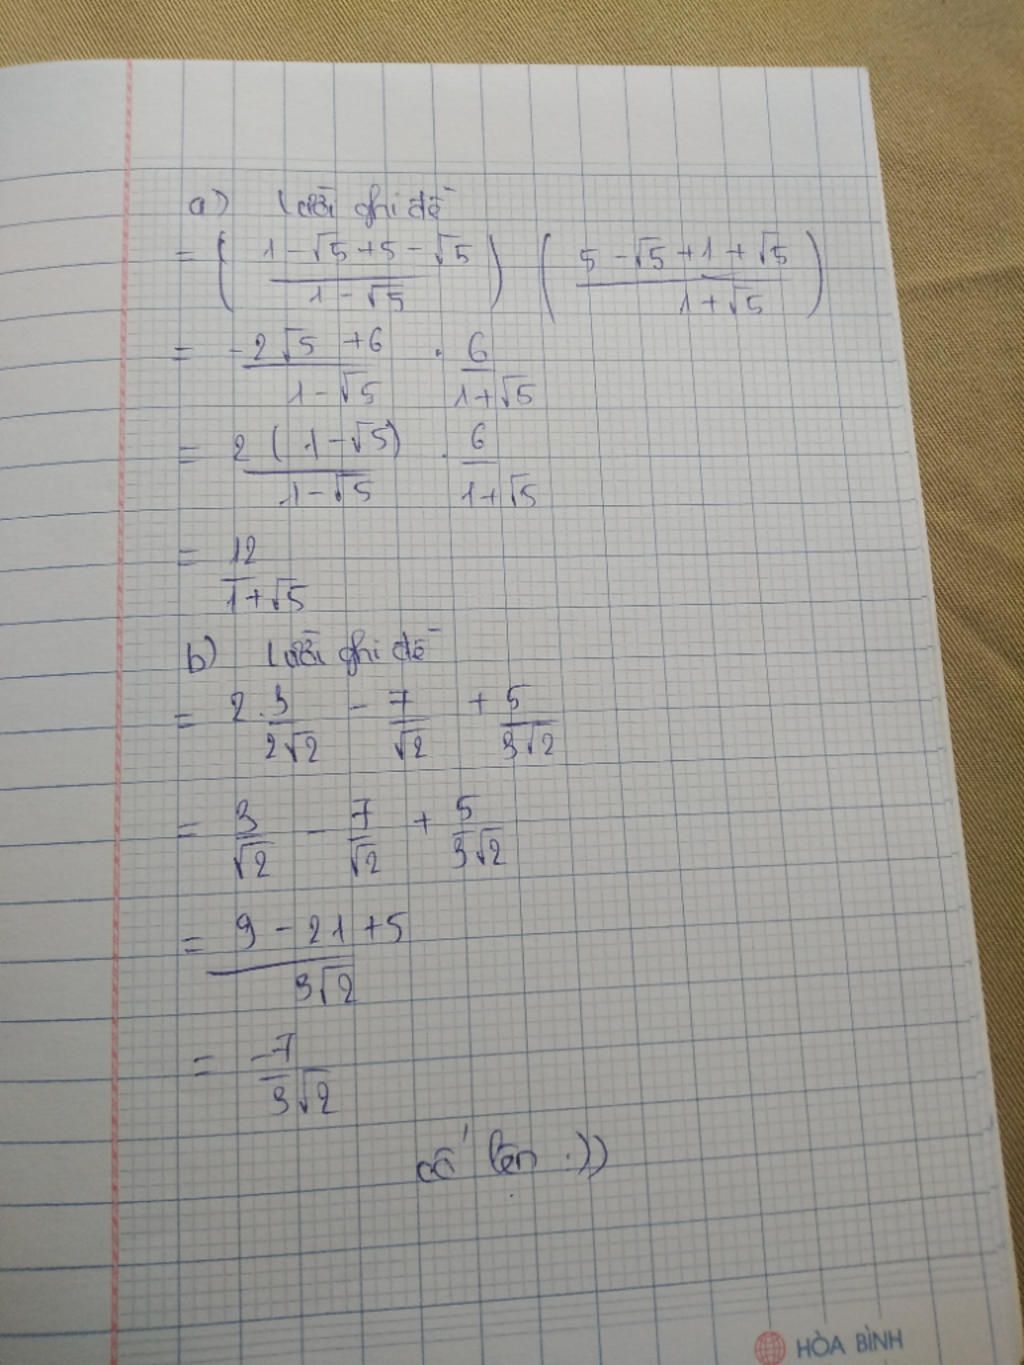 a) lười ghi đề
= ( (1 - √5 + 5 - √5) / (1 - √5) ) ( (5 - √5 + 1 + √5) / (1 + √5) )
= (-2√5 + 6) / (1 - √5) . 6 / (1 + √5)
= 2 (1 - √5) / (1 - √5) . 6 / (1 + √5)
= 12 / (1 + √5)
b) lười ghi đề
= 2 . 3 / (2√2) - 7 / √2 + 5 / (3√2)
= 3 / √2 - 7 / √2 + 5 / (3√2)
= (9 - 21 + 5) / (3√2)
= -7 / (3√2)
cố lên :))
HÒA BÌNH